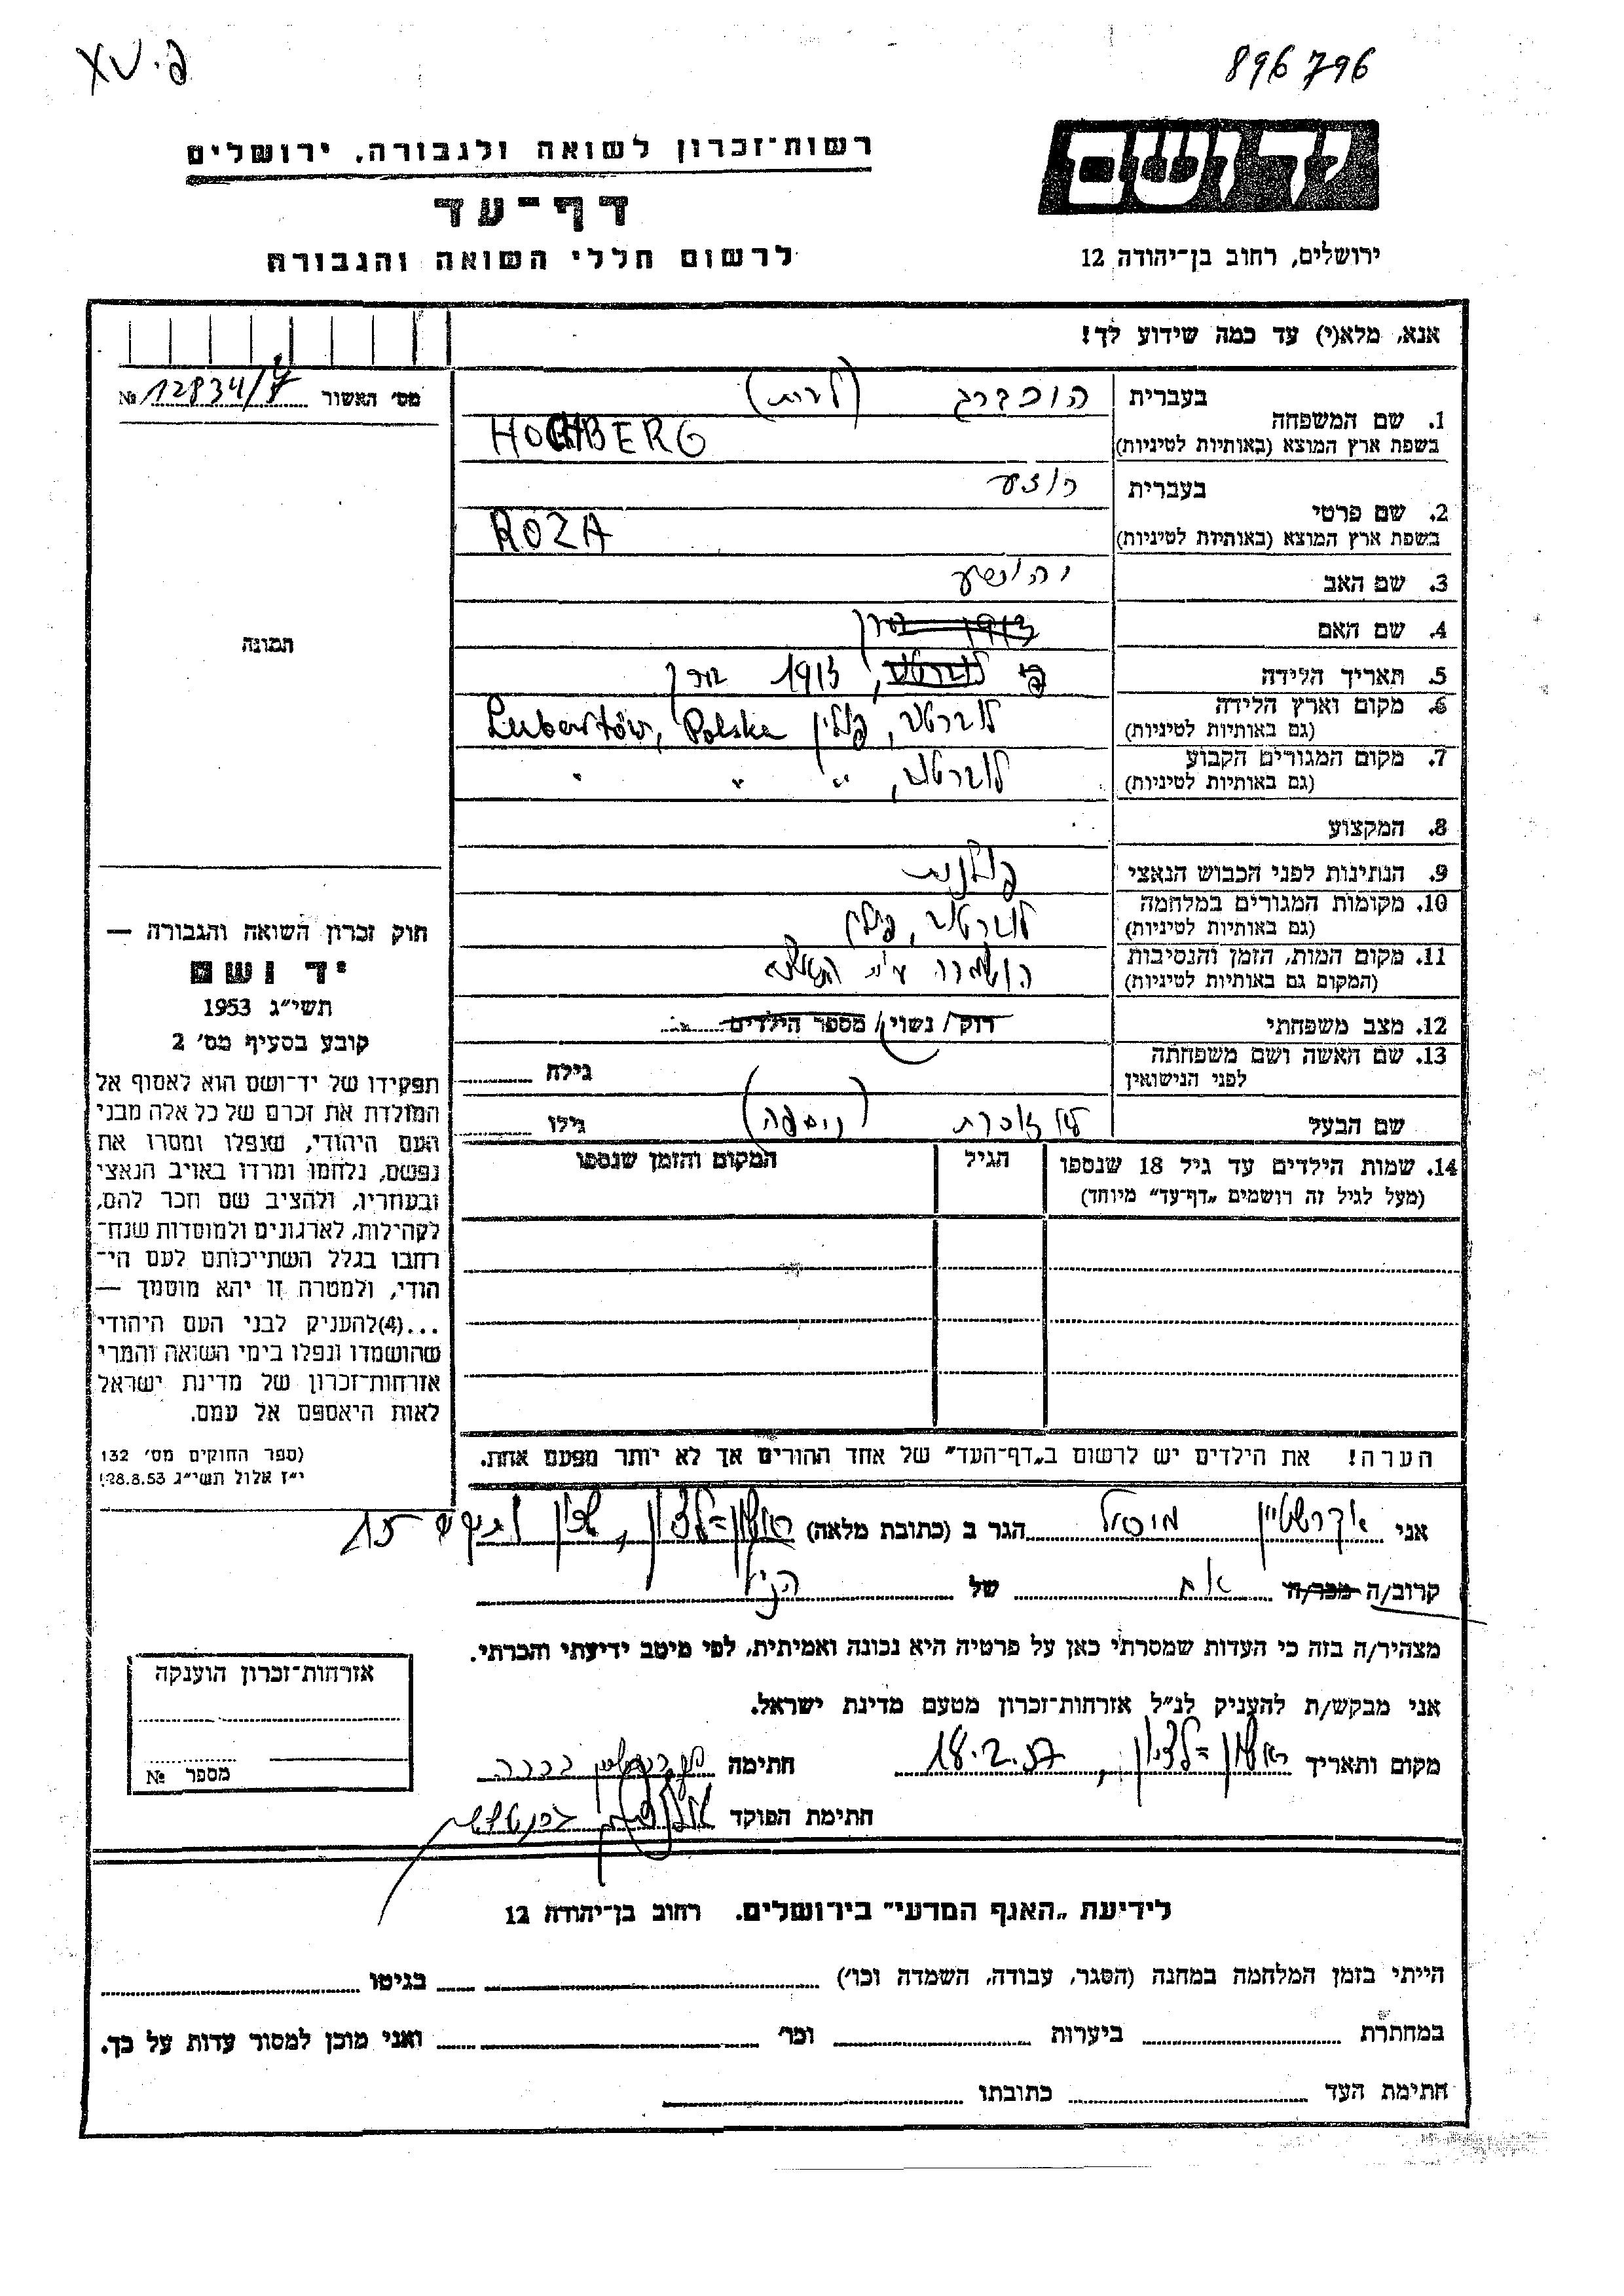 896796
יד ושם
רשות־זכרון לשואה ולגבורה, ירושלים
דף־עד
לרשום חללי השואה והגבורה
ירושלים, רחוב בן־יהודה 12
אנא, מלא(י) עד כמה שידוע לך!
מס׳ האשור № 12834/
1. שם המשפחה
בעברית הוכברג
בשפת ארץ המוצא (באותיות לטיניות) HOCHBERG
2. שם פרטי
בעברית רוזע
בשפת ארץ המוצא (באותיות לטיניות) ROZA
3. שם האב יהושע
4. שם האם
5. תאריך הלידה 1913
6. מקום וארץ הלידה
(גם באותיות לטיניות) לוברטוב, פולין Lubartów, Polska
7. מקום המגורים הקבוע
(גם באותיות לטיניות) לוברטוב, " " "
8. המקצוע
9. הנתינות לפני הכבוש הנאצי פולנית
10. מקומות המגורים במלחמה
(גם באותיות לטיניות) לוברטוב, פולין
11. מקום המות, הזמן והנסיבות
(המקום גם באותיות לטיניות) הושמדה ע״י
12. מצב משפחתי רווק/ נשוי/ מספר הילדים
13. שם האשה ושם משפחתה
לפני הנישואין גילה
שם הבעל גילו
14. שמות הילדים עד גיל 18 שנספו הגיל המקום והזמן שנספו
(מעל לגיל זה רושמים „דף־עד״ מיוחד)
תמונה
חוק זכרון השואה והגבורה —
יד ושם
תשי״ג 1953
קובע בסעיף מס׳ 2
תפקידו של יד־ושם הוא לאסוף אל
המולדת את זכרם של כל אלה מבני
העם היהודי, שנפלו ומסרו את
נפשם, נלחמו ומרדו באויב הנאצי
ובעוזריו, ולהציב שם וזכר להם,
לקהילות, לארגונים ולמוסדות שנח־
רבו בגלל השתייכותם לעם הי־
הודי, ולמטרה זו יהא מוסמך —
...(4)להעניק לבני העם היהודי
שהושמדו ונפלו בימי השואה והמרי
אזרחות־זכרון של מדינת ישראל
לאות היאספם אל עמם.
(ספר החוקים מס׳ 132
י״ז אלול תשי״ג 28.8.53)
הערה! את הילדים יש לרשום ב„דף־העד״ של אחד ההורים אך לא יותר מפעם אחת.
אני הגר ב (כתובת מלאה) ראשון־לציון, 15
קרוב/ה מכר/ה אח של הנ״ל
מצהיר/ה בזה כי העדות שמסרתי כאן על פרטיה היא נכונה ואמיתית, לפי מיטב ידיעתי והכרתי.
אני מבקש/ת להעניק לנ״ל אזרחות־זכרון מטעם מדינת ישראל.
מקום ותאריך ראשון־לציון, 18.2.57 חתימה
חתימת הפוקד
אזרחות־זכרון הוענקה
מספר №
לידיעת „האגף המדעי״ בירושלים. רחוב בן־יהודה 12
הייתי בזמן המלחמה במחנה (הסגר, עבודה, השמדה וכו׳) בגיטו
במחתרת ביערות וכו׳ ואני מוכן למסור עדות על כך.
חתימת העד כתובתו